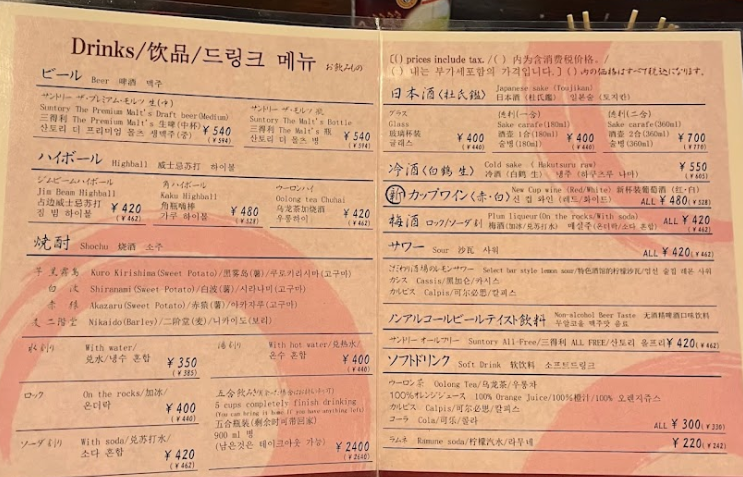 Drinks/饮品/드링크 메뉴 お飲みもの
ビール Beer 啤酒 맥주
サントリー ザ・プレミアム・モルツ 生(中)
Suntory The Premium Malt's Draft beer(Medium)
三得利 The Premium Malt's 生啤(中杯)
산토리 더 프리미엄 몰츠 생맥주(중)
¥540
(¥594)
サントリー ザ・モルツ 瓶
Suntory The Malt's Bottle
三得利 The Malt's 瓶
산토리 더 몰츠 병
¥540
(¥594)
ハイボール Highball 威士忌苏打 하이볼
ジムビームハイボール
Jim Beam Highball
占边威士忌苏打
짐 빔 하이볼
¥420
(¥462)
角ハイボール
Kaku Highball
角瓶嗨棒
가쿠 하이볼
¥480
(¥528)
ウーロンハイ
Oolong tea Chuhai
乌龙茶加烧酒
우롱하이
¥420
(¥462)
焼酎 Shochu 烧酒 소주
黒霧島 Kuro Kirishima(Sweet Potato)/黑雾岛(薯)/쿠로키리시마(고구마)
白波 Shiranami(Sweet Potato)/白波(薯)/시라나미(고구마)
赤猿 Akazaru(Sweet Potato)/赤猿(薯)/아카자루(고구마)
麦 二階堂 Nikaido(Barley)/二阶堂(麦)/니카이도(보리)
水割り With water/
兑水/냉수 혼합
¥350
(¥385)
湯割り With hot water/兑热水/
온수 혼합
¥400
(¥440)
ロック On the rocks/加冰/
온더락
¥400
(¥440)
ソーダ割り With soda/兑苏打水/
소다 혼합
¥420
(¥462)
5 cups completely finish drinking
(You can bring it home if you have anything left)
五合瓶装(剩余时可带回家)
900 ml 병
(남은것은 테이크아웃 가능)
¥2400
(¥2640)
[() prices include tax. /( ) 内为含消费税价格。/
( ) 내는 부가세포함의 가격입니다.] ( )内の価格はすべて税込になります。
日本酒(杜氏鑑) Japanese sake (Toujikan)
日本酒 (杜氏鑑) 일본술 (토지칸)
グラス
Glass
玻璃杯装
글래스
¥400
(¥440)
徳利(一合)
Sake carafe(180ml)
酒壶 1合(180ml)
술병(180ml)
¥400
(¥440)
徳利(二合)
Sake carafe(360ml)
酒壶 2合(360ml)
술병(360ml)
¥700
(¥770)
冷酒(白鶴 生) Cold sake (Hakutsuru raw)
冷酒 (白鹤 生) 냉주 (하쿠츠루 나마)
¥550
(¥605)
新 カップワイン(赤・白) New Cup wine (Red/White) 新杯装葡萄酒 (红・白)
신 컵 와인 (레드/화이트)
ALL ¥480(¥528)
梅酒 ロック/ソーダ割 Plum liqueur(On the rocks/With soda)
梅酒(加冰/兑苏打水) 매실주(온더락/소다 혼합)
ALL ¥420
(¥462)
サワー Sour 沙瓦 사워
ALL ¥420(¥462)
こだわり酒場のレモンサワー Select bar style lemon sour/特色酒馆的柠檬沙瓦/엄선 술집 레몬 사워
カシス Cassis/黑加仑/카시스
カルピス Calpis/可尔必思/칼피스
ノンアルコールビールテイスト飲料 Non-alcohol Beer Taste 无酒精啤酒口味饮料
무알코올 맥주맛 음료
サントリー オールフリー Suntory All-Free/三得利 ALL FREE/산토리 올프리 ¥420(¥462)
ソフトドリンク Soft Drink 软饮料 소프트드링크
ウーロン茶 Oolong Tea/乌龙茶/우롱차
100%オレンジジュース 100% Orange Juice/100%橙汁/100% 오렌지쥬스
カルピス Calpis/可尔必思/칼피스
コーラ Cola/可乐/콜라
ALL ¥300(¥330)
ラムネ Ramune soda/柠檬汽水/라무네
¥220(¥242)